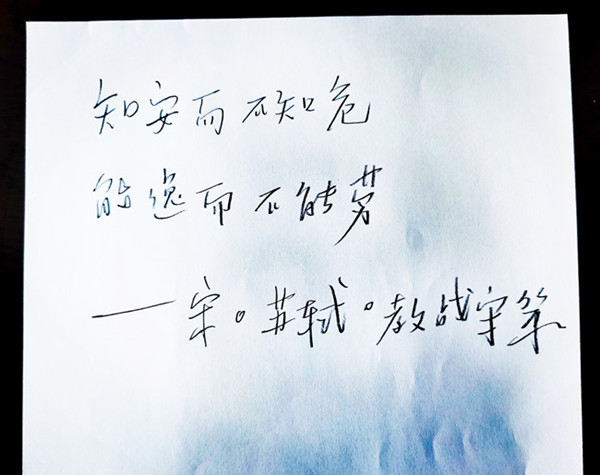 知安而不知危
能逸而不能劳
——宋。苏轼。教战守策